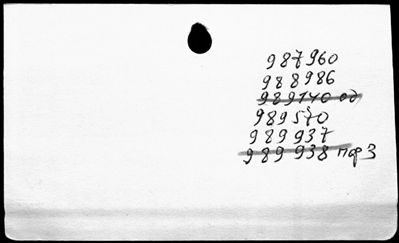 987960
988986
989140 од
989570
989937
989938 пор 3